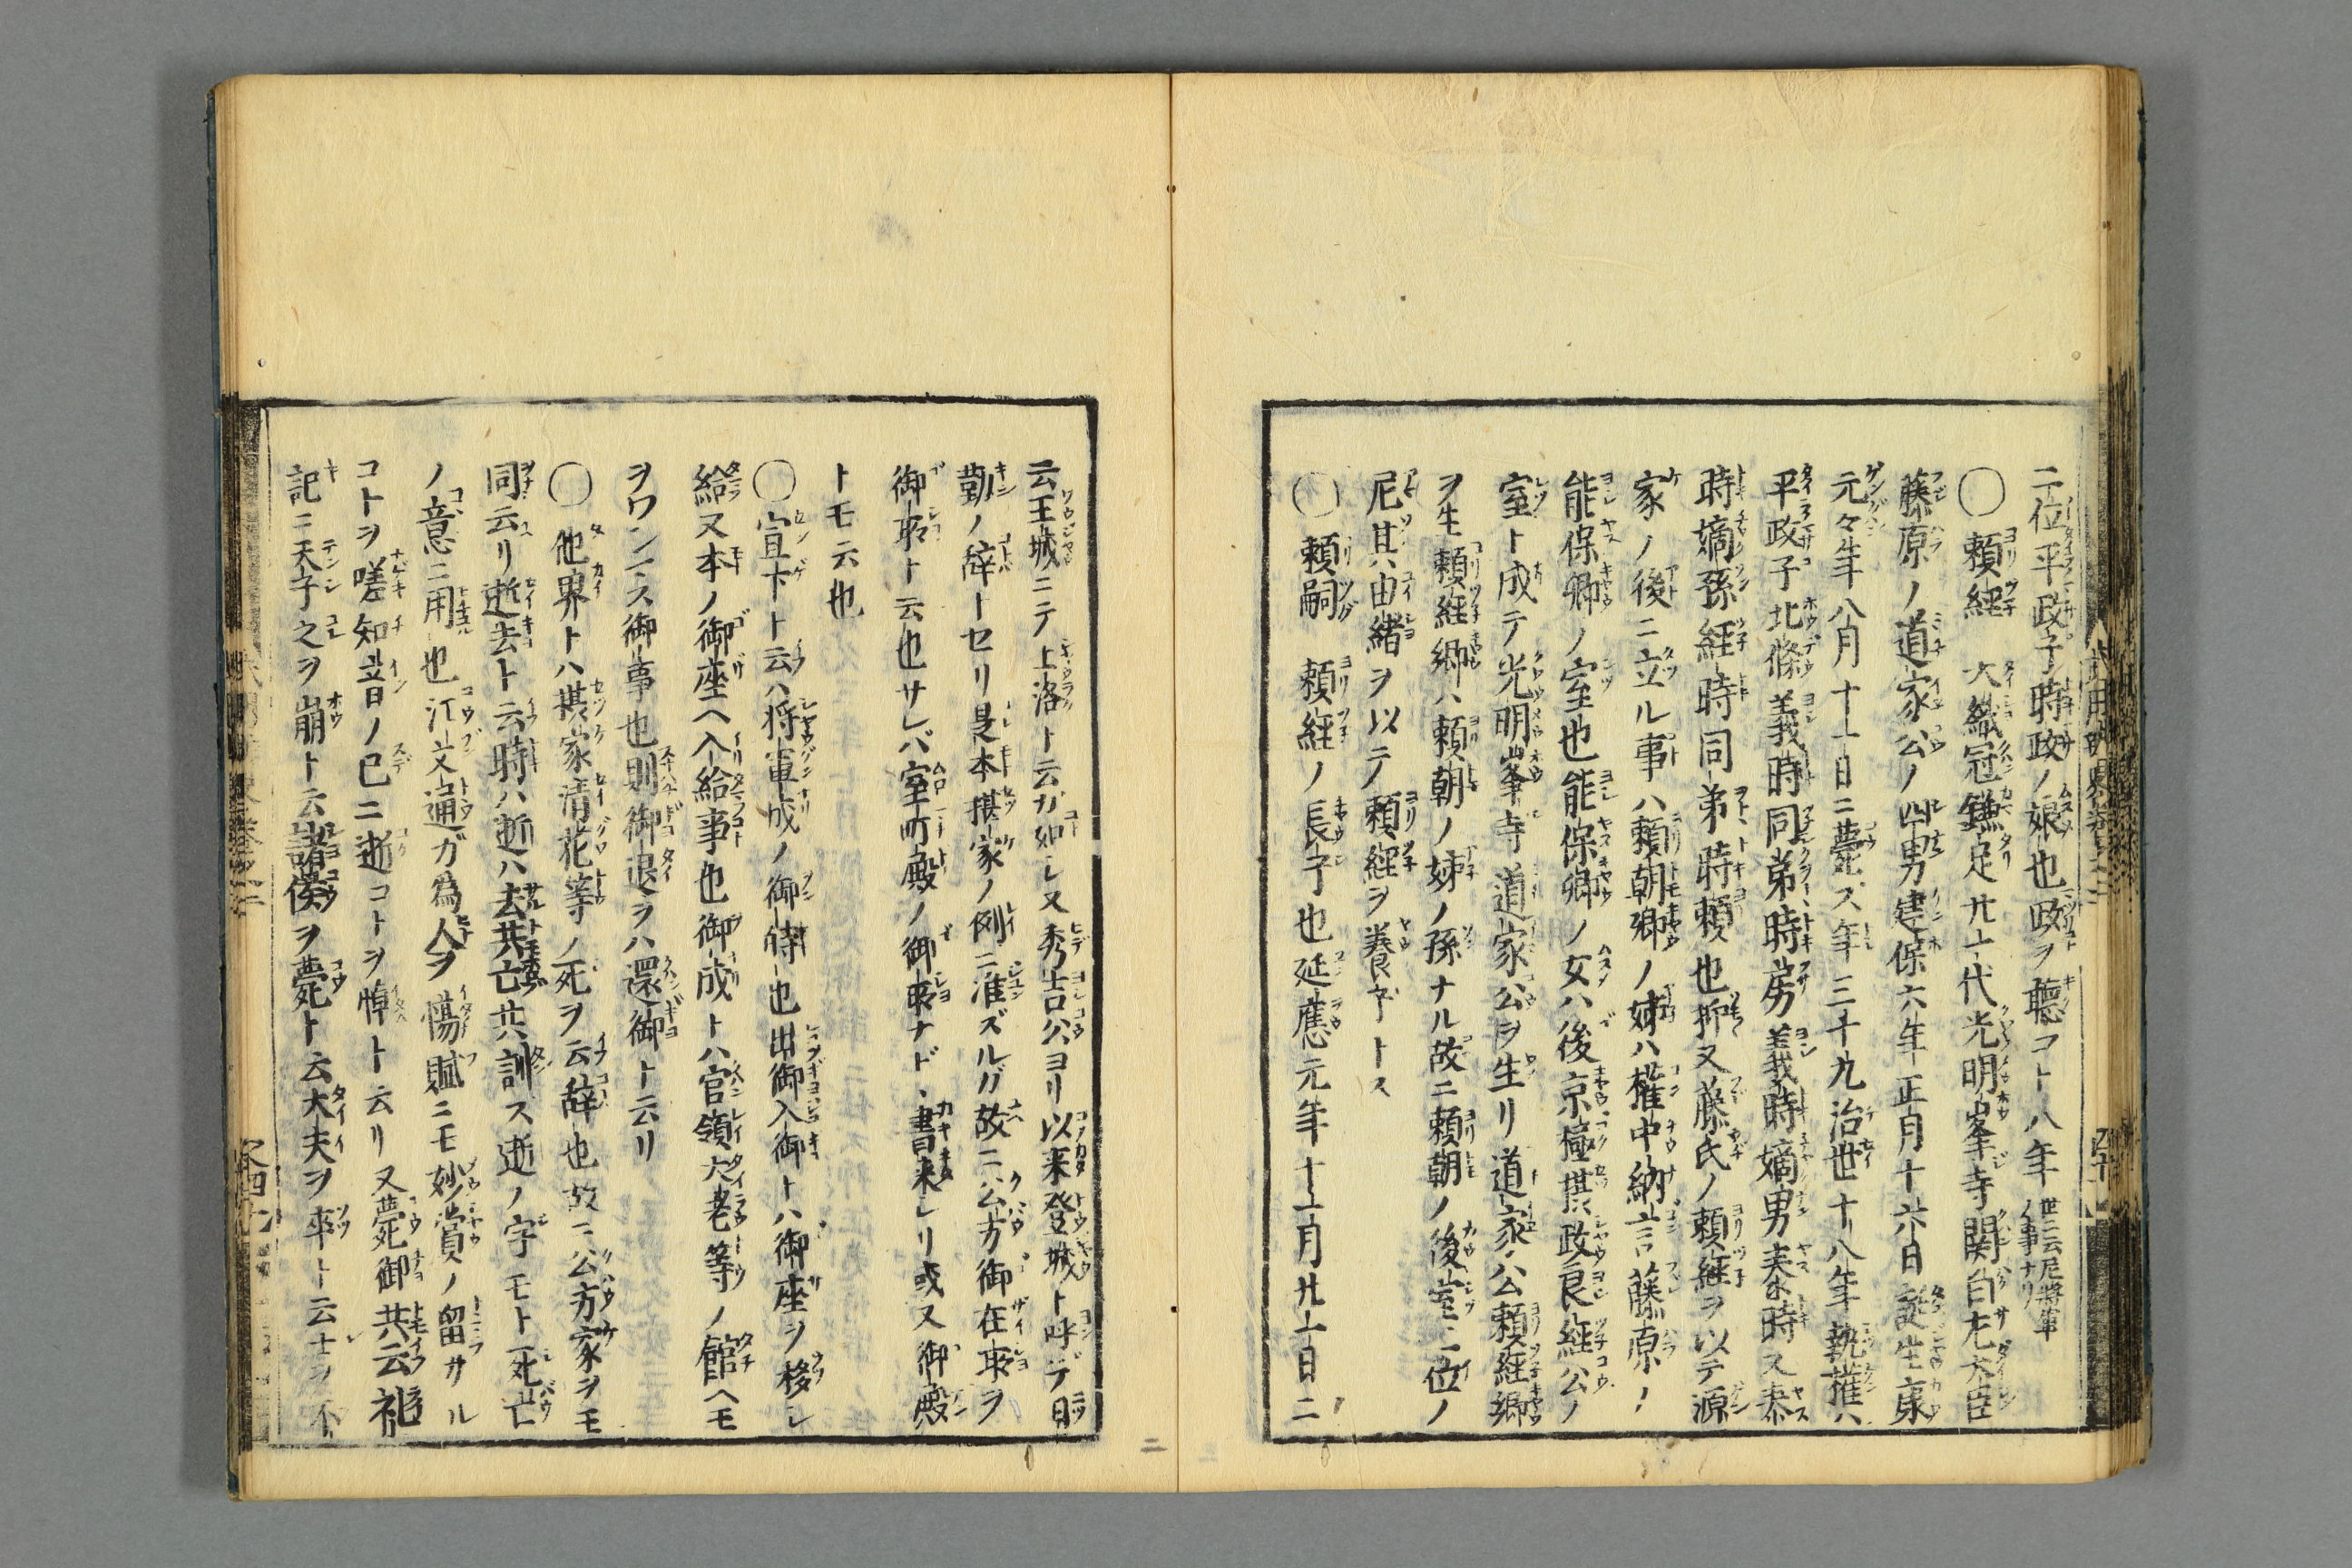 二位平政子時政ノ娘也政ヲ聴コト八年世ニ云尼将軍ノ事ナリ
〇頼経 大織冠鎌足廿一代光明峯寺関白左大臣
藤原ノ道家公ノ四男建保六年正月十六日誕生康
元々年八月十一日ニ薨ス年三十九治世十八年執権ハ
平政子北條義時同弟時房義時嫡男泰時又泰
時嫡孫経時同弟時頼也抑又藤氏ノ頼経ヲ以テ源
家ノ後ニ立ル事ハ頼朝卿ノ姉ハ権中納言藤原ノ
能保卿ノ室也能保卿ノ女ハ後京極摂政良経公ノ
室ト成テ光明峯寺道家公ヲ生リ道家公頼経卿
ヲ生頼経卿ハ頼朝ノ姉ノ孫ナル故ニ頼朝ノ後室二位ノ
尼其由緒ヲ以テ頼経ヲ養子トス
〇頼嗣 頼経ノ長子也延應元年十一月廿一日ニ
云王城ニテ上洛ト云ガ如シ又秀吉公ヨリ以来登城ト呼デ日
勤ノ辞トセリ是本摂家ノ例ニ准ズルガ故ニ公方御在所ヲ
御所ト云也サレバ室町殿ノ御所ナド書来レリ或又御殿
トモ云也
〇宣下ト云ハ将軍成ノ御時也出御入御トハ御座ヲ移シ
給又本ノ御座ヘ入給事也御成トハ官領大老等ノ館ヘモ
ヲワンス御事也則御退ヲハ還御ト云リ
〇他界トハ摂家清花等ノ死ヲ云辞也故ニ公方家ヲモ
同云リ逝去ト云時ハ逝ハ去共亡共訓ス逝ノ字モト死亡
ノ意ニ用也江文通ガ為人ヲ傷賦ニモ妙賞ノ留サル
コトヲ嗟知音ノ已ニ逝コトヲ悼ト云リ又薨御共云礼
記ニ天子之ヲ崩ト云諸侯ヲ薨ト云大夫ヲ卒ト云士ヲ不